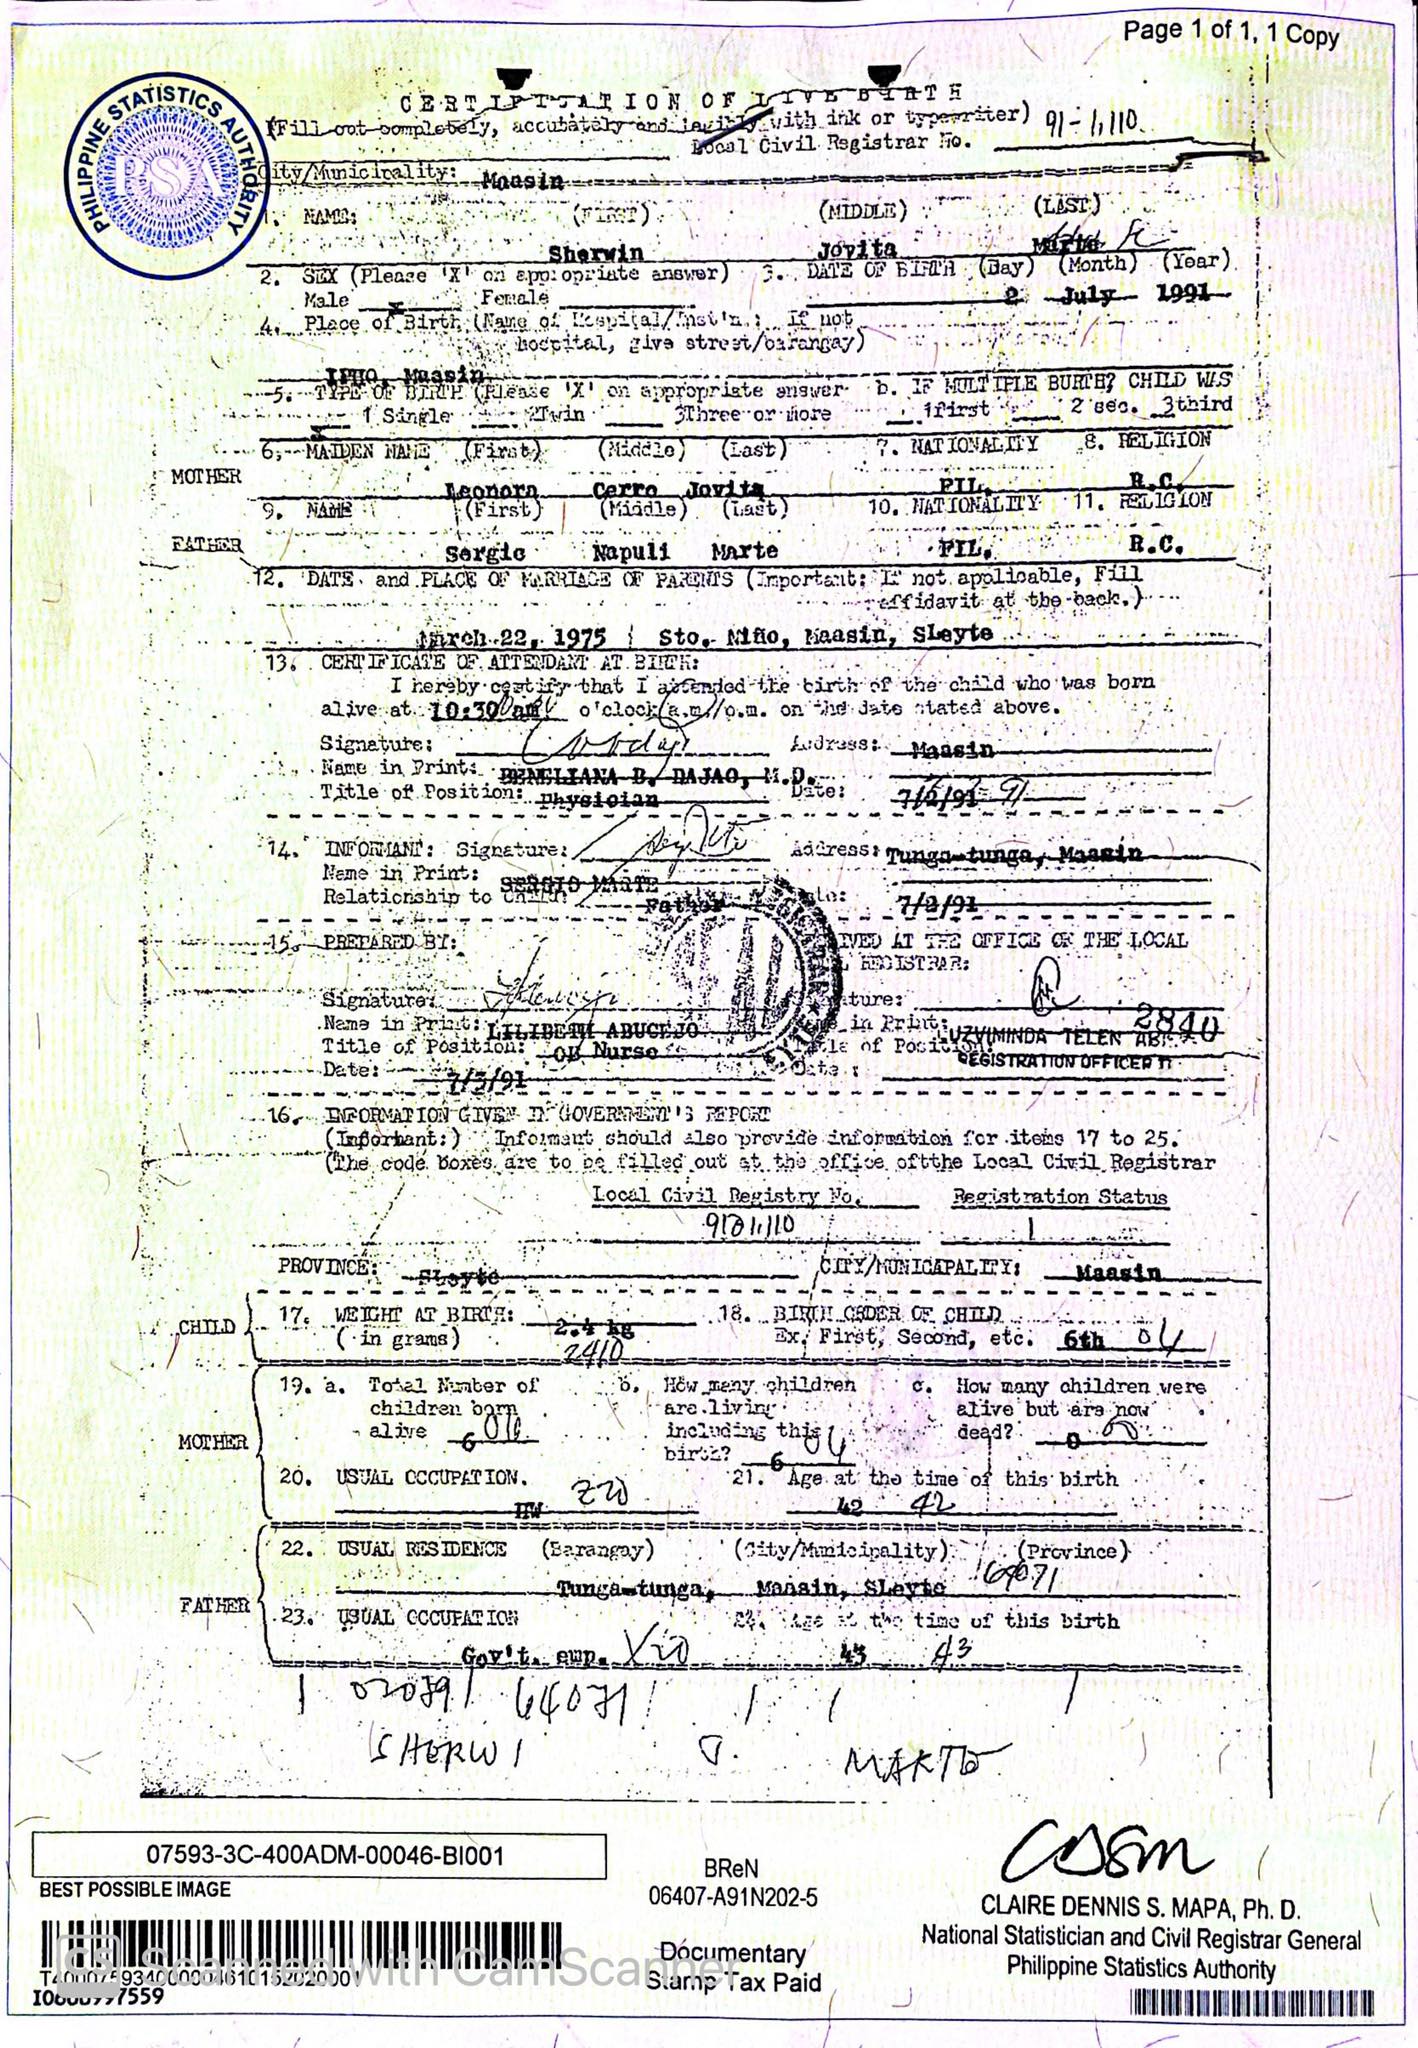 Page 1 of 1, 1 Copy
PHILIPPINE STATISTICS AUTHORITY
PSA
CERTIFICATION OF LIVE BIRTH
(Fill out completely, accurately and legibly with ink or typewriter)
91-1,110
Local Civil Registrar No.
City/Municipality: Maasin
1. NAME: (FIRST) (MIDDLE) (LAST)
Sherwin Jovita Marte
2. SEX (Please 'X' on appropriate answer) 3. DATE OF BIRTH (Day) (Month) (Year)
Male x Female 2 July 1991
4. Place of Birth (Name of Hospital/Inst'n.; If not
hospital, give street/barangay)
IPHO, Maasin
5. TYPE OF BIRTH (Please 'X' on appropriate answer b. IF MULTIPLE BURTH? CHILD WAS
x 1 Single 2Twin 3Three or More 1first 2 sec. 3third
6. MAIDEN NAME (First) (Middle) (Last) 7. NATIONALITY 8. RELIGION
MOTHER
Leonora Cerro Jovita FIL. R.C.
9. NAME (First) (Middle) (Last) 10. NATIONALITY 11. RELIGION
FATHER
Sergio Napuli Marte FIL. R.C.
12. DATE and PLACE OF MARRIAGE OF PARENTS (Important: If not applicable, Fill
affidavit at the back.)
March 22, 1975 Sto. Niño, Maasin, SLeyte
13. CERTIFICATE OF ATTENDANT AT BIRTH:
I hereby certify that I attended the birth of the child who was born
alive at 10:30 am o'clock a.m./p.m. on the date stated above.
Signature: Address: Maasin
Name in Print: BENELIANA B. DAJAO, M.D.
Title of Position: Physician Date: 7/2/91
14. INFORMANT: Signature: Address: Tunga-tunga, Maasin
Name in Print: SERGIO MARTE
Relationship to Child: Father 7/2/91
15. PREPARED BY: IVED AT THE OFFICE OF THE LOCAL
REGISTRAR:
Signature: ture:
Name in Print: LILIBETH ABUCEJO in Print: 2840
LUZVIMINDA TELEN
Title of Position: OB Nurse of Position: REGISTRATION OFFICER II
Date: 7/3/91 Date:
16. INFORMATION GIVEN IN GOVERNMENT'S REPORT
(Important:) Informant should also provide information for items 17 to 25.
(The code boxes are to be filled out at the office ofthe Local Civil Registrar
Local Civil Registry No. Registration Status
1
PROVINCE: SLeyte CITY/MUNICAPALITY: Maasin
CHILD
17. WEIGHT AT BIRTH: 2.4 kg 18. BIRTH ORDER OF CHILD
(in grams) 2410 Ex. First, Second, etc. 6th 06
MOTHER
19. a. Total Number of b. How many children c. How many children were
children born are living alive but are now
alive 6 06 including this dead? 0
birth? 6 06
20. USUAL OCCUPATION. 21. Age at the time of this birth
HW 42 42
FATHER
22. USUAL RESIDENCE (Barangay) (City/Municipality) (Province)
Tunga-tunga, Maasin, SLeyte 64071
23. USUAL OCCUPATION 24. Age at the time of this birth
Gov't. emp. 43 43
1 64071
SHERWI J. MARTE
07593-3C-400ADM-00046-BI001
BEST POSSIBLE IMAGE
BReN
06407-A91N202-5
CLAIRE DENNIS S. MAPA, Ph. D.
National Statistician and Civil Registrar General
Philippine Statistics Authority
Documentary
Stamp Tax Paid
CS Scanned with CamScanner